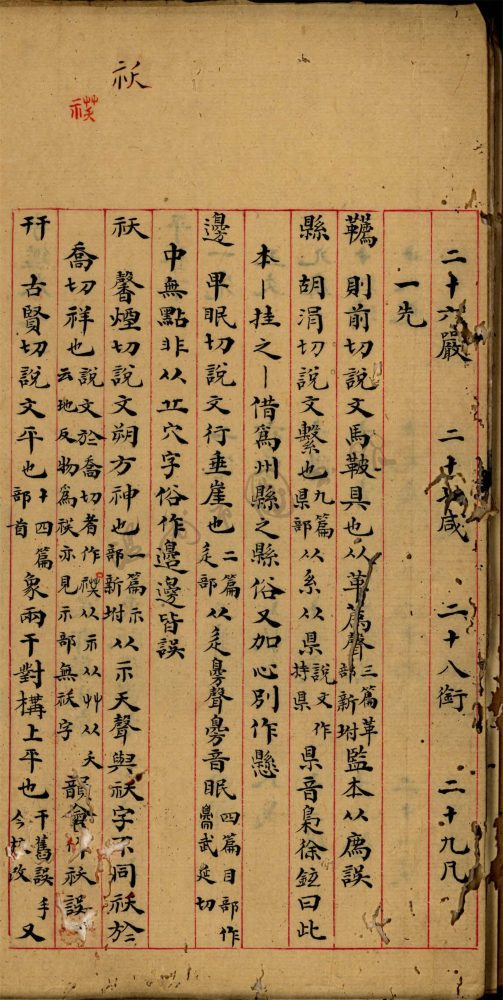 祆
䄏
二十六嚴 二十七咸 二十八銜 二十九凡
一先
韉 則前切說文馬鞁具也从革薦聲三篇革部新坿監本从廌誤
縣 胡涓切說文繫也九篇県部从系从県說文作持県県音梟徐鉉曰此
本丨挂之丨借爲州縣之縣俗又加心別作懸
邊 畢眠切說文行垂崖也二篇辵部从辵臱聲臱音眠四篇目部作臱武延切
中無點非从丠穴字俗作邉邊皆誤
祆 馨煙切說文朔方神也一篇示部新坿从示天聲與祅字不同祅於
喬切祥也說文於喬切者作䄏从示从艸从夭云地反物爲䄏亦見示部無祅字韻會作祅誤
幵 古賢切說文平也十四篇部首象兩干對構上平也干舊誤手今校改又